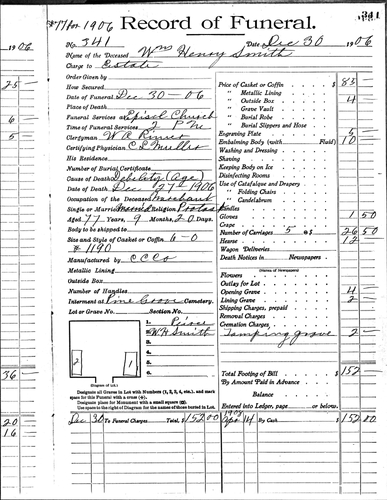 #77 for 1906 Record of Funeral. 341
No. 341 Date Dec 30 1906
Name of the Deceased Wm Henry Smith
Charge to Estate
Order Given by
How Secured
Date of Funeral Dec 30 - 06
Place of Death
Funeral Services at Episcl Church
Time of Funeral Services 2 P M
Clergyman W R
Certifying Physician
His Residence
Number of Burial Certificate
Cause of Death Debility (Age)
Date of Death Dec 27th 1906
Occupation of the Deceased Merchant
Single or Married Married Religion
Aged 77 Years, 9 Months, 20 Days.
Body to be shipped to
Size and Style of Casket or Coffin 6-0
# 1190
Manufactured by C C Co
Metallic Lining
Outside Box
Number of Handles
Interment at Pine Grove Cemetery.
Lot or Grave No. Section No.
1. Peirce
2. W H Smith
3.
4.
5.
6.
2 1
(Diagram of Lot.)
Designate all Graves in Lot with Numbers (1, 2, 3, 4, etc.), and mark
space for this Funeral with a cross (+).
Designate place for Monument with a small square (□).
Use space to the right of Diagram for the names of those buried in Lot.
Price of Casket or Coffin $ 85
" Metallic Lining
" Outside Box 4
" Grave Vault
" Burial Robe
" Burial Slippers and Hose
Engraving Plate 5
Embalming Body (with Fluid) 10
Washing and Dressing
Shaving
Keeping Body on Ice
Disinfecting Rooms
Use of Catafalque and Drapery
" Folding Chairs
" Candelabrum
Candles
Gloves 1 50
Crape
Number of Carriages 5 @ $ 26 50
Hearse 12
Wagon Deliveries
Death Notices in Newspapers
(Names of Newspapers)
Flowers
Outlay for Lot
Opening Grave 4
Lining Grave 2
Shipping Charges, prepaid
Removal Charges
Cremation Charges
Tamping grave 2
Total Footing of Bill $ 152
By Amount Paid in Advance
Balance
Entered into Ledger, page or below.
Dec 30 To Funeral Charges Total, $ 152 00 Apr 14 By Cash $ 152 00
1906
25
6
5
36
20
16